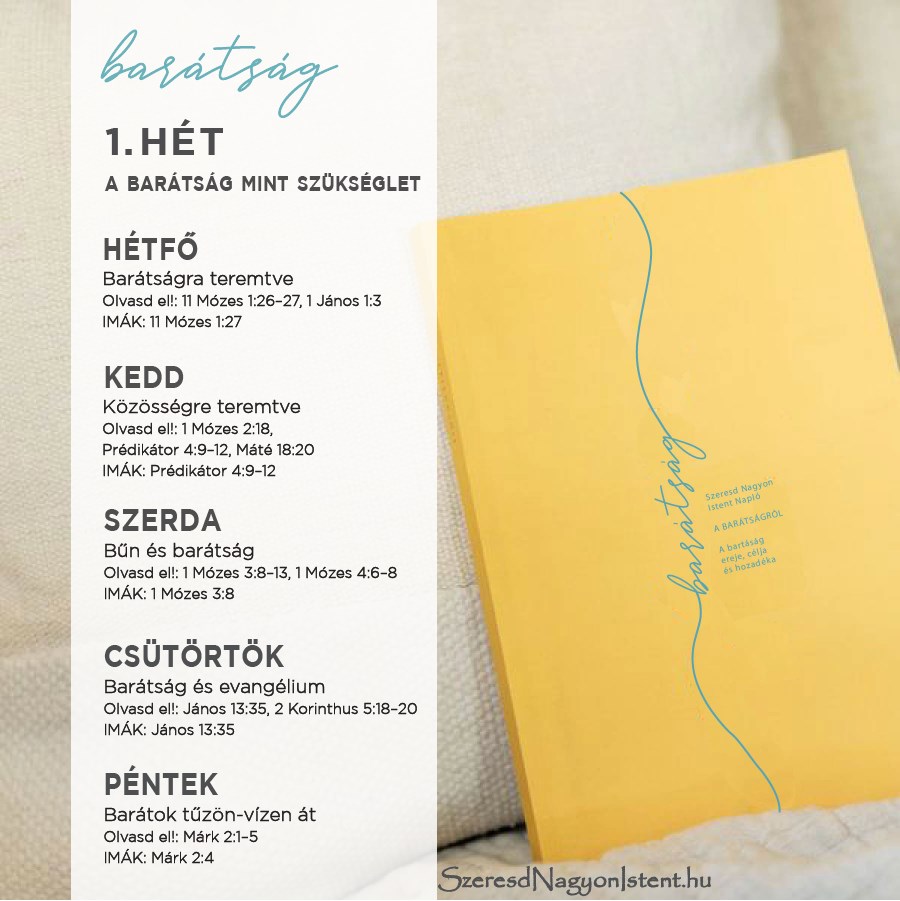 barátság
1. HÉT
A BARÁTSÁG MINT SZÜKSÉGLET
HÉTFŐ
Barátságra teremtve
Olvasd el!: 11 Mózes 1:26–27, 1 János 1:3
IMÁK: 11 Mózes 1:27
KEDD
Közösségre teremtve
Olvasd el!: 1 Mózes 2:18,
Prédikátor 4:9–12, Máté 18:20
IMÁK: Prédikátor 4:9–12
SZERDA
Bűn és barátság
Olvasd el!: 1 Mózes 3:8–13, 1 Mózes 4:6–8
IMÁK: 1 Mózes 3:8
CSÜTÖRTÖK
Barátság és evangélium
Olvasd el!: János 13:35, 2 Korinthus 5:18–20
IMÁK: János 13:35
PÉNTEK
Barátok tűzön-vízen át
Olvasd el!: Márk 2:1–5
IMÁK: Márk 2:4
barátság
Szeresd Nagyon
Istent Napló
A BARÁTSÁGRÓL
A bartáság
ereje, célja
és hozadéka
SzeresdNagyonIstent.hu